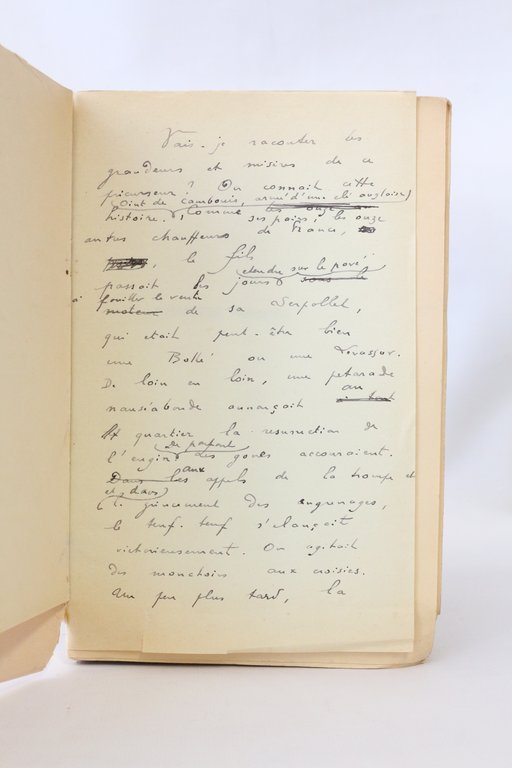 Vais-je raconter les
grandeurs et misères de ce
précurseur ? On connait cette
(Oint de cambouis, armé d'une clé anglaise)
histoire. Comme les onze
ses pairs, les onze
autres chauffeurs de France,
, le fils
étendu sur le pavé,
passait les jours sous le
à fouiller le ventre
moteur de sa Serpollet,
qui était peut-être bien
une Bollé ou une Levassor.
De loin en loin, une pétarade
au
nauséabonde annonçait
quartier la résurrection de
l'engin des gones accouraient.
aux
Dans les appels de la trompe et
et, dans
le grincement des engrenages,
le teuf-teuf s'élançait
victorieusement. On agitait
des mouchoirs aux croisées.
Un peu plus tard, la